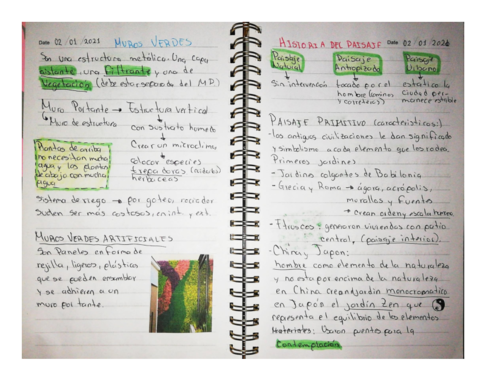 Date 02/01/2021 MUROS VERDES
Son una estructura metálica. Una capa
aislante, una filtrante y una de
vegetación (debe estar separado del M.P.)
Muro Portante → Estructura vertical
Muro de estructura
con sustrato humedo
Crear un microclima
colocar especies
trepadoras
herbaceas
Plantas de arriba
no necesitan mucha
agua y las plantas
de abajo con mucha
agua
Sistema de riego → por goteo, recircular
Suelen ser más costosos, en int. y ext.
MUROS VERDES ARTIFICIALES
Son Paneles en forma de
rejilla, ligeros, plásticos
que se pueden ensamblar
y se adhieren a un
muro portante.
HISTORIA DEL PAISAJE Date 02/01/2021
Paisaje Natural
Paisaje Antropizado
Paisaje Urbano
Sin intervención
tocado por el
hombre (caminos
y carreteras)
estático: la
ciudad per-
manece estable
PAISAJE PRIMITIVO (características).
- Las antiguas civilizaciones le dan significado
y simbolismo a cada elemento que les rodea.
Primeros jardines
- Jardines colgantes de Babilonia
- Grecia y Roma → ágora, acrópolis,
murallas y fuentes
→ crean orden y escala humana
- Etruscos: generaron viviendas con patio
central, (paisaje interior).
- China y Japon:
hombre como elemento de la naturaleza
y no esta por encima de la naturaleza
en China crean jardin monocromatico
en Japón el jardín Zen que
representa el equilibrio de los elementos
Materiales: Usaron puentes para la
Contemplación